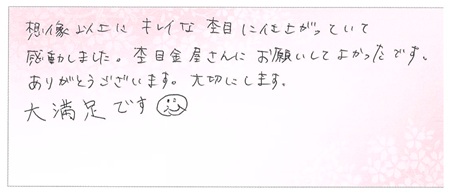 想像以上に キレイな 杢目に仕上がっていて
感動しました。杢目金屋さんに お願いしてよかったです。
ありがとうございます。大切にします。
大満足です